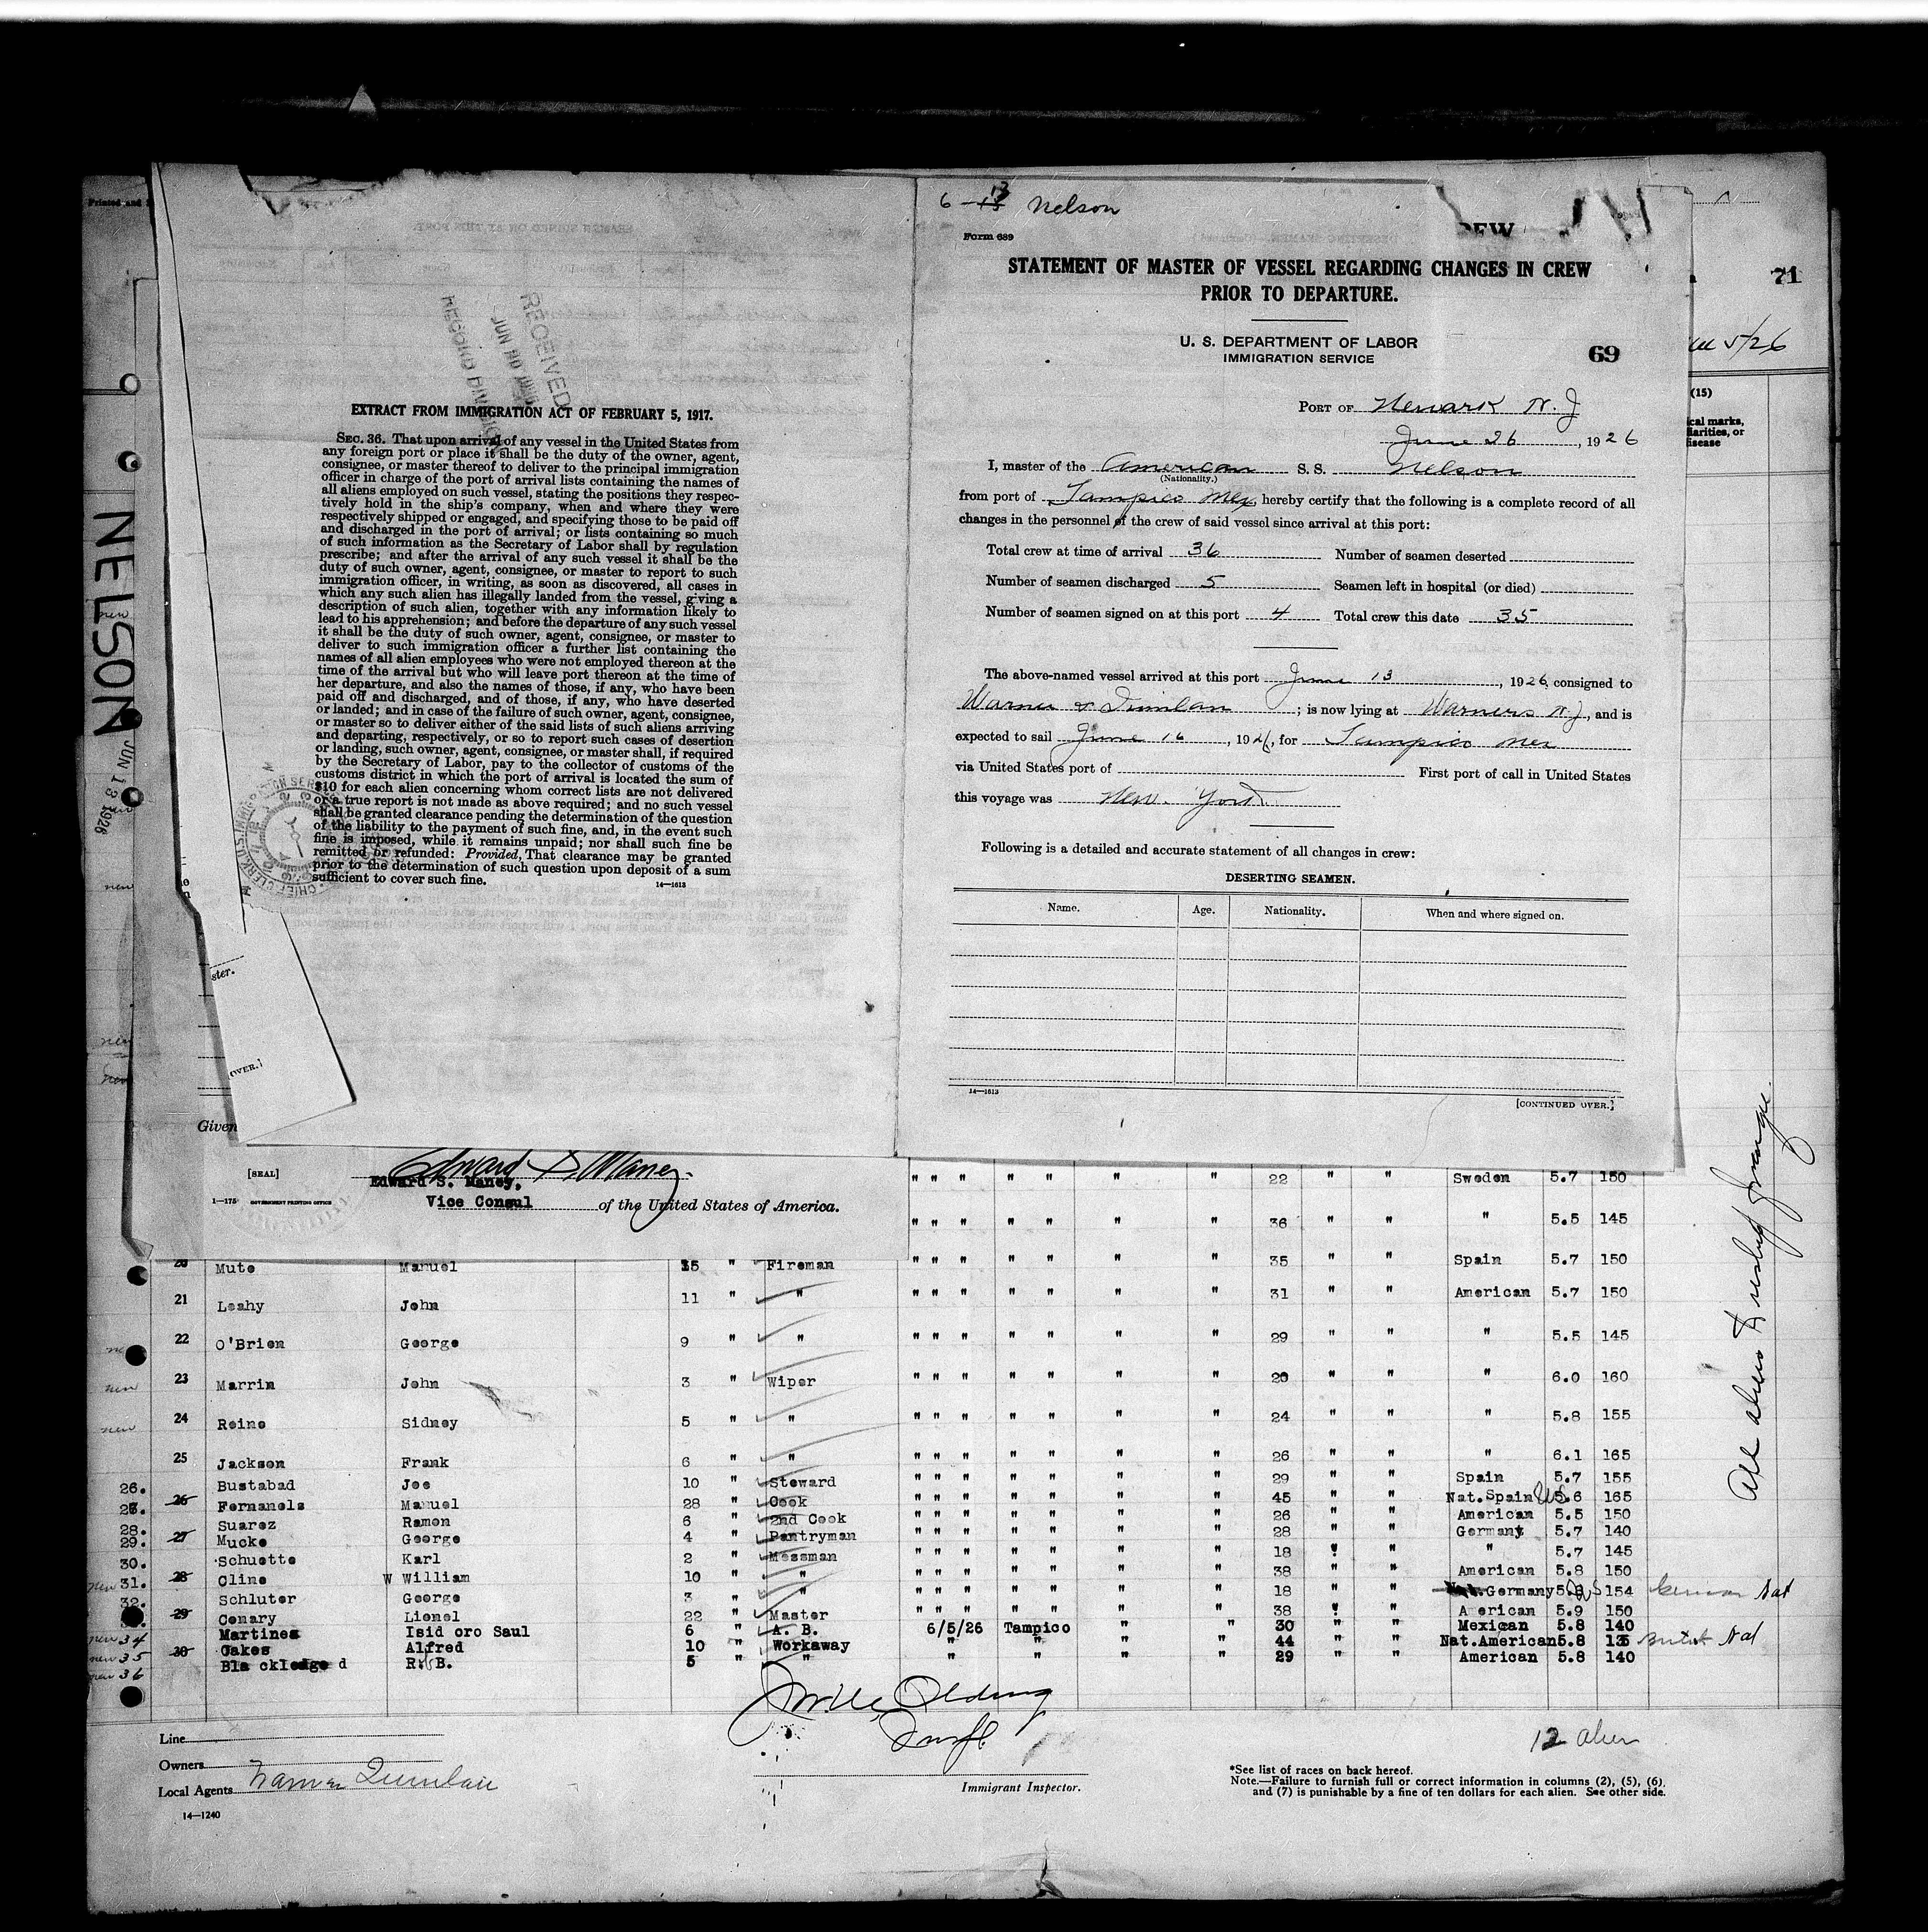 Printed and
NELSON
JUN 13 1926
new
new
new
new
new
71
5/26
(15)
ical marks,
liarities, or
disease
RECEIVED
RECORD DIVISION
EXTRACT FROM IMMIGRATION ACT OF FEBRUARY 5, 1917.
SEC. 36. That upon arrival of any vessel in the United States from
any foreign port or place it shall be the duty of the owner, agent,
consignee, or master thereof to deliver to the principal immigration
officer in charge of the port of arrival lists containing the names of
all aliens employed on such vessel, stating the positions they respec-
tively hold in the ship's company, when and where they were
respectively shipped or engaged, and specifying those to be paid off
and discharged in the port of arrival; or lists containing so much
of such information as the Secretary of Labor shall by regulation
prescribe; and after the arrival of any such vessel it shall be the
duty of such owner, agent, consignee, or master to report to such
immigration officer, in writing, as soon as discovered, all cases in
which any such alien has illegally landed from the vessel, giving a
description of such alien, together with any information likely to
lead to his apprehension; and before the departure of any such vessel
it shall be the duty of such owner, agent, consignee, or master to
deliver to such immigration officer a further list containing the
names of all alien employees who were not employed thereon at the
time of the arrival but who will leave port thereon at the time of
her departure, and also the names of those, if any, who have been
paid off and discharged, and of those, if any, who have deserted
or landed; and in case of the failure of such owner, agent, consignee,
or master so to deliver either of the said lists of such aliens arriving
and departing, respectively, or so to report such cases of desertion
or landing, such owner, agent, consignee, or master shall, if required
by the Secretary of Labor, pay to the collector of customs of the
customs district in which the port of arrival is located the sum of
$10 for each alien concerning whom correct lists are not delivered
or a true report is not made as above required; and no such vessel
shall be granted clearance pending the determination of the question
of the liability to the payment of such fine, and, in the event such
fine is imposed, while it remains unpaid; nor shall such fine be
remitted or refunded: Provided, That clearance may be granted
prior to the determination of such question upon deposit of a sum
sufficient to cover such fine.
14—1613
ster.
OVER.]
6 13 Nelson
Form 689
STATEMENT OF MASTER OF VESSEL REGARDING CHANGES IN CREW
PRIOR TO DEPARTURE.
U. S. DEPARTMENT OF LABOR
IMMIGRATION SERVICE
69
PORT OF Newark N. J
June 26, 1926
I, master of the American S. S. Nelson
(Nationality.)
from port of Tampico Mex, hereby certify that the following is a complete record of all
changes in the personnel of the crew of said vessel since arrival at this port:
Total crew at time of arrival 36 Number of seamen deserted
Number of seamen discharged 5 Seamen left in hospital (or died)
Number of seamen signed on at this port 4 Total crew this date 35
The above-named vessel arrived at this port June 13, 1926, consigned to
Warner & Quinlan; is now lying at Warners N. J, and is
expected to sail June 16, 1926, for Tampico Mex
via United States port of First port of call in United States
this voyage was New York
Following is a detailed and accurate statement of all changes in crew:
DESERTING SEAMEN.
Name. Age. Nationality. When and where signed on.
14—1613 [CONTINUED OVER.]
Given
[SEAL] Edward S. Maney
Edward S. Maney,
Vice Consul of the United States of America.
1—175 GOVERNMENT PRINTING OFFICE
" " " " " " " 22 " " Sweden 5.7 150
" " " " " " " 36 " " " 5.5 145
20 Mute Manuel 15 " Fireman " " " " " " " 35 " " Spain 5.7 150
21 Leahy John 11 " " " " " " " " " 31 " " American 5.7 150
22 O'Brien George 9 " " " " " " " " " 29 " " " 5.5 145
new 23 Marrin John 3 " Wiper " " " " " " " 20 " " " 6.0 160
new 24 Reine Sidney 5 " " " " " " " " " 24 " " " 5.8 155
25 Jackson Frank 6 " " " " " " " " " 26 " " " 6.1 165
26. Bustabad Joe 10 " Steward " " " " " " " 29 " " Spain 5.7 155
27. 26 Fernanels Manuel 28 " Cook " " " " " " " 45 " " Nat. Spain US 5.6 165
28. Suarez Ramon 6 " 2nd Cook " " " " " " " 26 " " American 5.5 150
29. 27 Mucke George 4 " Pantryman " " " " " " " 28 " " Germany 5.7 140
30. Schuette Karl 2 " Messman " " " " " " " 18 " " " 5.7 145
new 31. 28 Cline W William 10 " " " " " " " " " 38 " " American 5.8 150
32. Schluter George 3 " " " " " " " " " 18 " " Germany 5.8 154 German Nat
29 Conary Lionel 22 " Master " " " " " " " 38 " " American 5.9 150
new 34 Martinez Isid oro Saul 6 " A. B. 6/5/26 Tampico " " 30 " " Mexican 5.8 140
new 35 30 Oakes Alfred 10 " Workaway " " " " 44 " " Nat.American 5.8 135 British Nat
new 36 Bla ckledge d R. B. 5 " " " " " " 29 " " American 5.8 140
12 alien
Line
Owners
Local Agents Warner Quinlan
14—1240
Immigrant Inspector.
*See list of races on back hereof.
Note.—Failure to furnish full or correct information in columns (2), (5), (6),
and (7) is punishable by a fine of ten dollars for each alien. See other side.